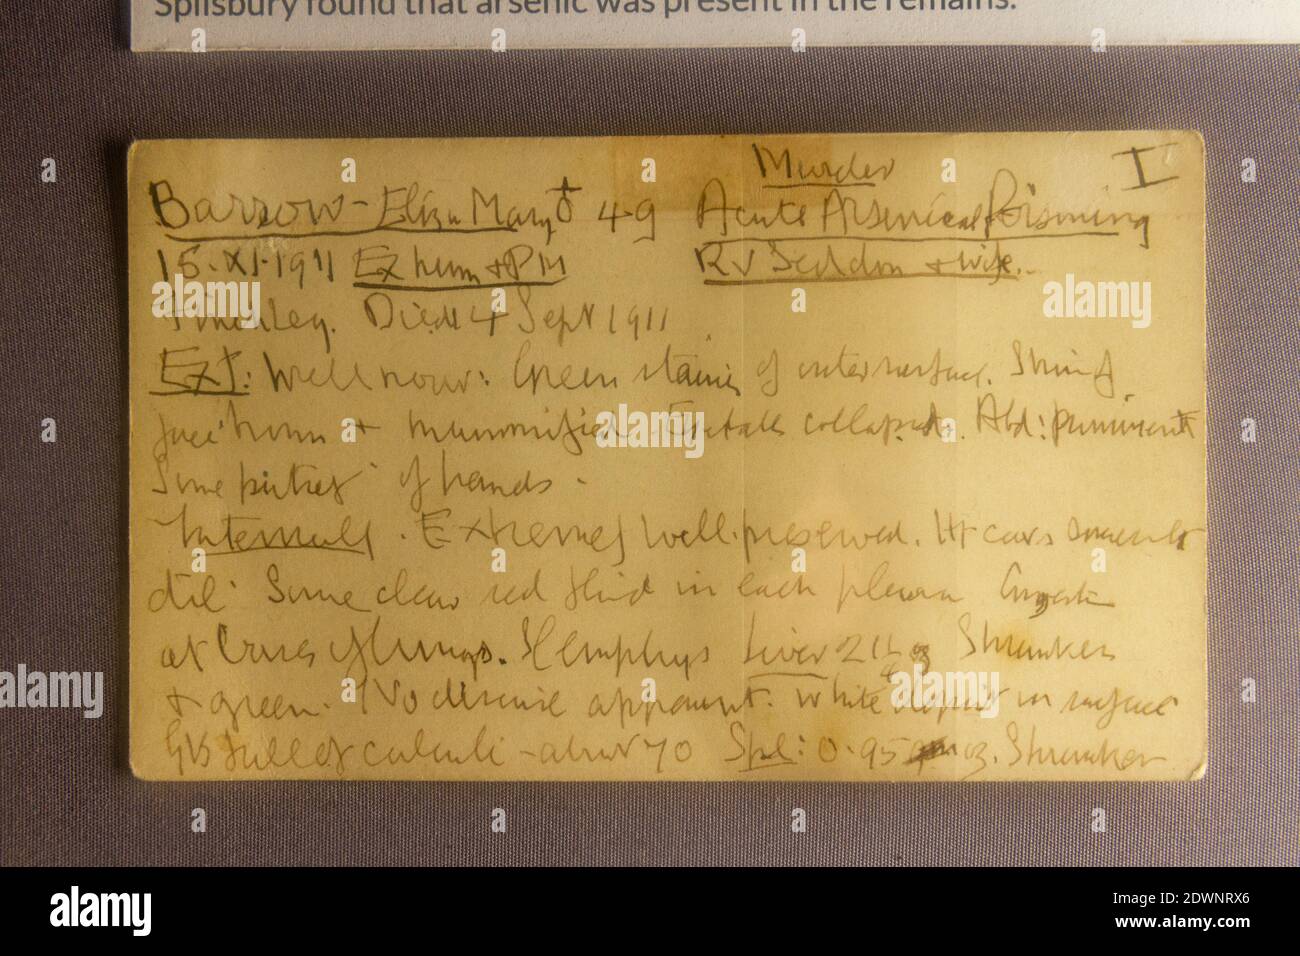 Spilsbury found that arsenic was present in the remains.
Murder
I
Barrow - Eliza Mary 49 Acute Arsenical Poisoning
15.XI.1911 Exhum + PM R v Seddon + wife.
Finchley. Died 4 Sept 1911
Ext: Well nour: Green stains of outer surface. Skin of
face brown + mummified Eyeballs collapsed. Abd: prominent
Some of hands.
Internally. Extremely well preserved. Ht cavs somewhat
dil. Some clear red fluid in each pleura Congestion
at bases of lungs. Emphys Liver 2 lb oz Shrunken
+ green. No disease apparent. White deposit on surface
GB full of calculi - about 70 Spl: 0.95 oz. Shrunken
alamy
Image ID: 2DWNRX6
www.alamy.com